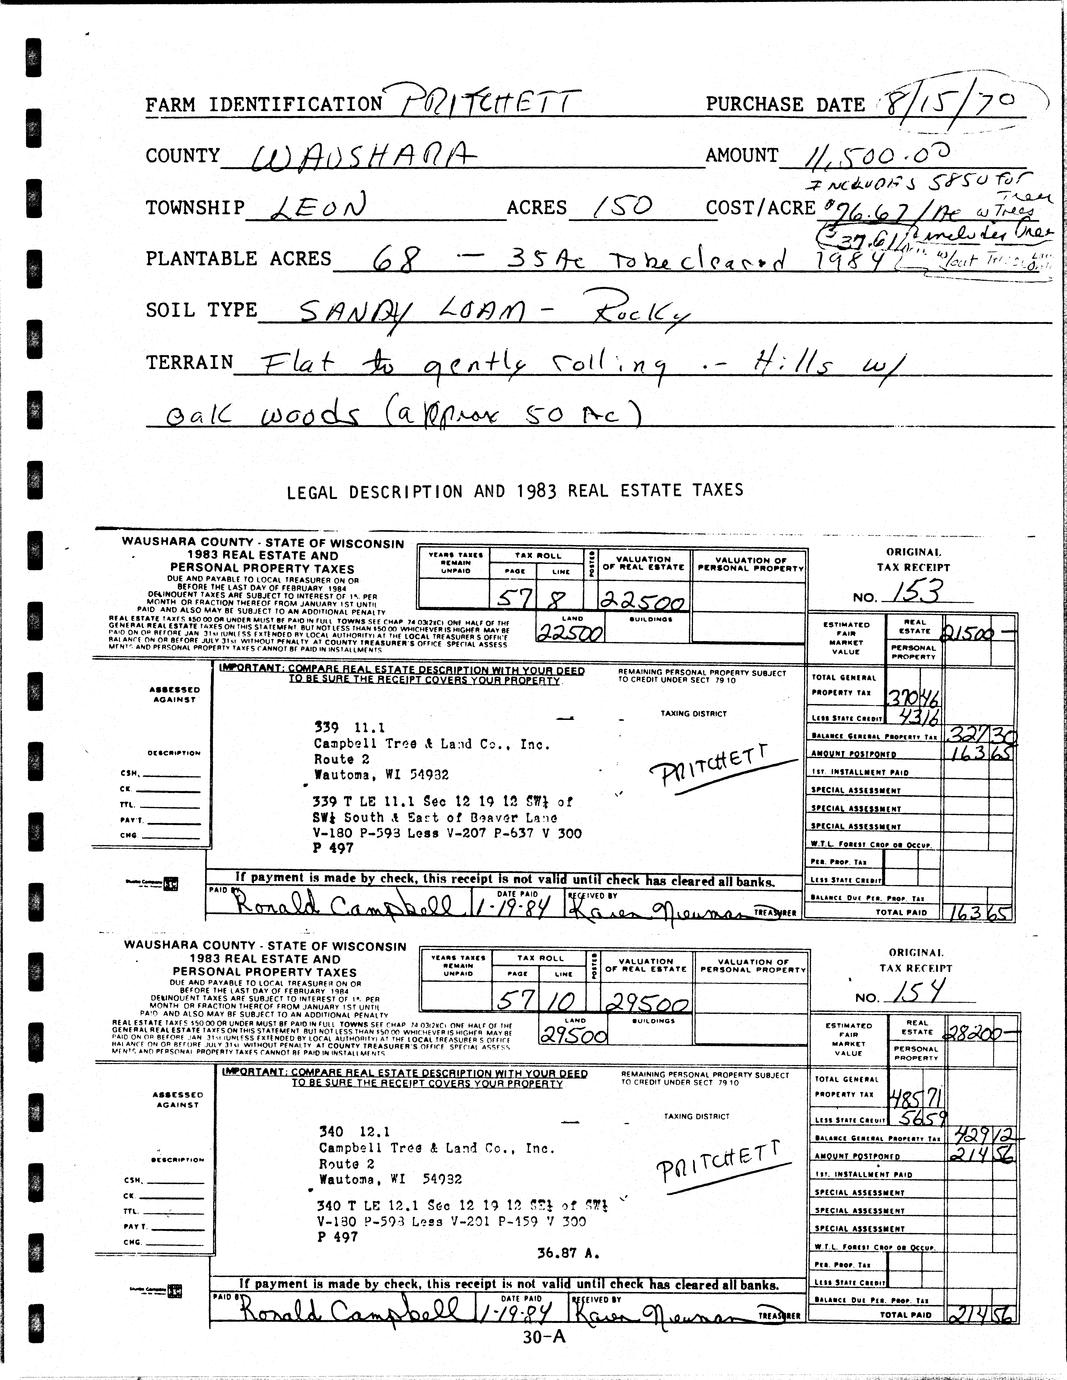 FARM IDENTIFICATION PRITCHETT PURCHASE DATE 8/15/70
COUNTY WAUSHARA AMOUNT 11,500.00
INCLUDES 5850 for Trees
TOWNSHIP LEON ACRES 150 COST/ACRE $76.67/Ac w Trees
$37.61/ includes
PLANTABLE ACRES 68 - 35 Ac To be cleared 1984 w/out Trees
SOIL TYPE SANDY LOAM - Rocky
TERRAIN Flat to gently rolling - Hills w/
oak woods (approx 50 Ac)
LEGAL DESCRIPTION AND 1983 REAL ESTATE TAXES
WAUSHARA COUNTY - STATE OF WISCONSIN
1983 REAL ESTATE AND
PERSONAL PROPERTY TAXES
DUE AND PAYABLE TO LOCAL TREASURER ON OR
BEFORE THE LAST DAY OF FEBRUARY 1984
DELINQUENT TAXES ARE SUBJECT TO INTEREST OF 1% PER
MONTH OR FRACTION THEREOF FROM JANUARY 1ST UNTIL
PAID AND ALSO MAY BE SUBJECT TO AN ADDITIONAL PENALTY
REAL ESTATE TAXES $50.00 OR UNDER MUST BE PAID IN FULL TOWNS SEE CHAP 74 03(2)(C) ONE HALF OF THE
GENERAL REAL ESTATE TAXES ON THIS STATEMENT BUT NOT LESS THAN $50.00 WHICHEVER IS HIGHER MAY BE
PAID ON OR BEFORE JAN 31st (UNLESS EXTENDED BY LOCAL AUTHORITY) AT THE LOCAL TREASURER'S OFFICE
BALANCE ON OR BEFORE JULY 31st WITHOUT PENALTY AT COUNTY TREASURER'S OFFICE SPECIAL ASSESS
MENTS AND PERSONAL PROPERTY TAXES CANNOT BE PAID IN INSTALLMENTS
YEARS TAXES REMAIN UNPAID
TAX ROLL
PAGE LINE
57 8
POSTED
VALUATION OF REAL ESTATE
22500
VALUATION OF PERSONAL PROPERTY
LAND
22500
BUILDINGS
ORIGINAL
TAX RECEIPT
NO. 153
ESTIMATED FAIR MARKET VALUE
REAL ESTATE 21500-
PERSONAL PROPERTY
IMPORTANT: COMPARE REAL ESTATE DESCRIPTION WITH YOUR DEED
TO BE SURE THE RECEIPT COVERS YOUR PROPERTY.
REMAINING PERSONAL PROPERTY SUBJECT
TO CREDIT UNDER SECT 79 10
ASSESSED
AGAINST
TAXING DISTRICT
339 11.1
Campbell Tree & Land Co., Inc.
Route 2
Wautoma, WI 54982
PRITCHETT
DESCRIPTION
CSH.
CK
TTL.
PAY'T.
CHG
339 T LE 11.1 Sec 12 19 12 SW¼ of
SW¼ South & East of Beaver Lane
V-180 P-593 Less V-207 P-637 V 300
P 497
TOTAL GENERAL
PROPERTY TAX 370 46
LESS STATE CREDIT 43 16
BALANCE GENERAL PROPERTY TAX 327 30
AMOUNT POSTPONED 163 65
1ST. INSTALLMENT PAID
SPECIAL ASSESSMENT
SPECIAL ASSESSMENT
SPECIAL ASSESSMENT
W.T.L. FOREST CROP OR OCCUP.
PER. PROP. TAX
LESS STATE CREDIT
BALANCE DUE PER. PROP. TAX
TOTAL PAID 163 65
If payment is made by check, this receipt is not valid until check has cleared all banks.
PAID BY Ronald Campbell DATE PAID 1-19-84 RECEIVED BY Karen Nieuman TREASURER
WAUSHARA COUNTY - STATE OF WISCONSIN
1983 REAL ESTATE AND
PERSONAL PROPERTY TAXES
DUE AND PAYABLE TO LOCAL TREASURER ON OR
BEFORE THE LAST DAY OF FEBRUARY 1984
DELINQUENT TAXES ARE SUBJECT TO INTEREST OF 1% PER
MONTH OR FRACTION THEREOF FROM JANUARY 1ST UNTIL
PAID AND ALSO MAY BE SUBJECT TO AN ADDITIONAL PENALTY
REAL ESTATE TAXES $50.00 OR UNDER MUST BE PAID IN FULL TOWNS SEE CHAP 74 03(2)(C) ONE HALF OF THE
GENERAL REAL ESTATE TAXES ON THIS STATEMENT BUT NOT LESS THAN $50.00 WHICHEVER IS HIGHER MAY BE
PAID ON OR BEFORE JAN 31st (UNLESS EXTENDED BY LOCAL AUTHORITY) AT THE LOCAL TREASURER'S OFFICE
BALANCE ON OR BEFORE JULY 31st WITHOUT PENALTY AT COUNTY TREASURER'S OFFICE SPECIAL ASSESS
MENTS AND PERSONAL PROPERTY TAXES CANNOT BE PAID IN INSTALLMENTS
YEARS TAXES REMAIN UNPAID
TAX ROLL
PAGE LINE
57 10
POSTED
VALUATION OF REAL ESTATE
29500
VALUATION OF PERSONAL PROPERTY
LAND
29500
BUILDINGS
ORIGINAL
TAX RECEIPT
NO. 154
ESTIMATED FAIR MARKET VALUE
REAL ESTATE 28200-
PERSONAL PROPERTY
IMPORTANT: COMPARE REAL ESTATE DESCRIPTION WITH YOUR DEED
TO BE SURE THE RECEIPT COVERS YOUR PROPERTY
REMAINING PERSONAL PROPERTY SUBJECT
TO CREDIT UNDER SECT 79 10
ASSESSED
AGAINST
TAXING DISTRICT
340 12.1
Campbell Tree & Land Co., Inc.
Route 2
Wautoma, WI 54982
PRITCHETT
DESCRIPTION
CSH.
CK
TTL.
PAY'T.
CHG.
340 T LE 12.1 Sec 12 19 12 SE¼ of SW¼
V-180 P-593 Less V-201 P-159 V 300
P 497
36.87 A.
TOTAL GENERAL
PROPERTY TAX 485 71
LESS STATE CREDIT 56 59
BALANCE GENERAL PROPERTY TAX 429 12
AMOUNT POSTPONED 214 56
1ST. INSTALLMENT PAID
SPECIAL ASSESSMENT
SPECIAL ASSESSMENT
SPECIAL ASSESSMENT
W.T.L. FOREST CROP OR OCCUP.
PER. PROP. TAX
LESS STATE CREDIT
BALANCE DUE PER. PROP. TAX
TOTAL PAID 214 56
If payment is made by check, this receipt is not valid until check has cleared all banks.
PAID BY Ronald Campbell DATE PAID 1-19-84 RECEIVED BY Karen Nieuman TREASURER
30-A